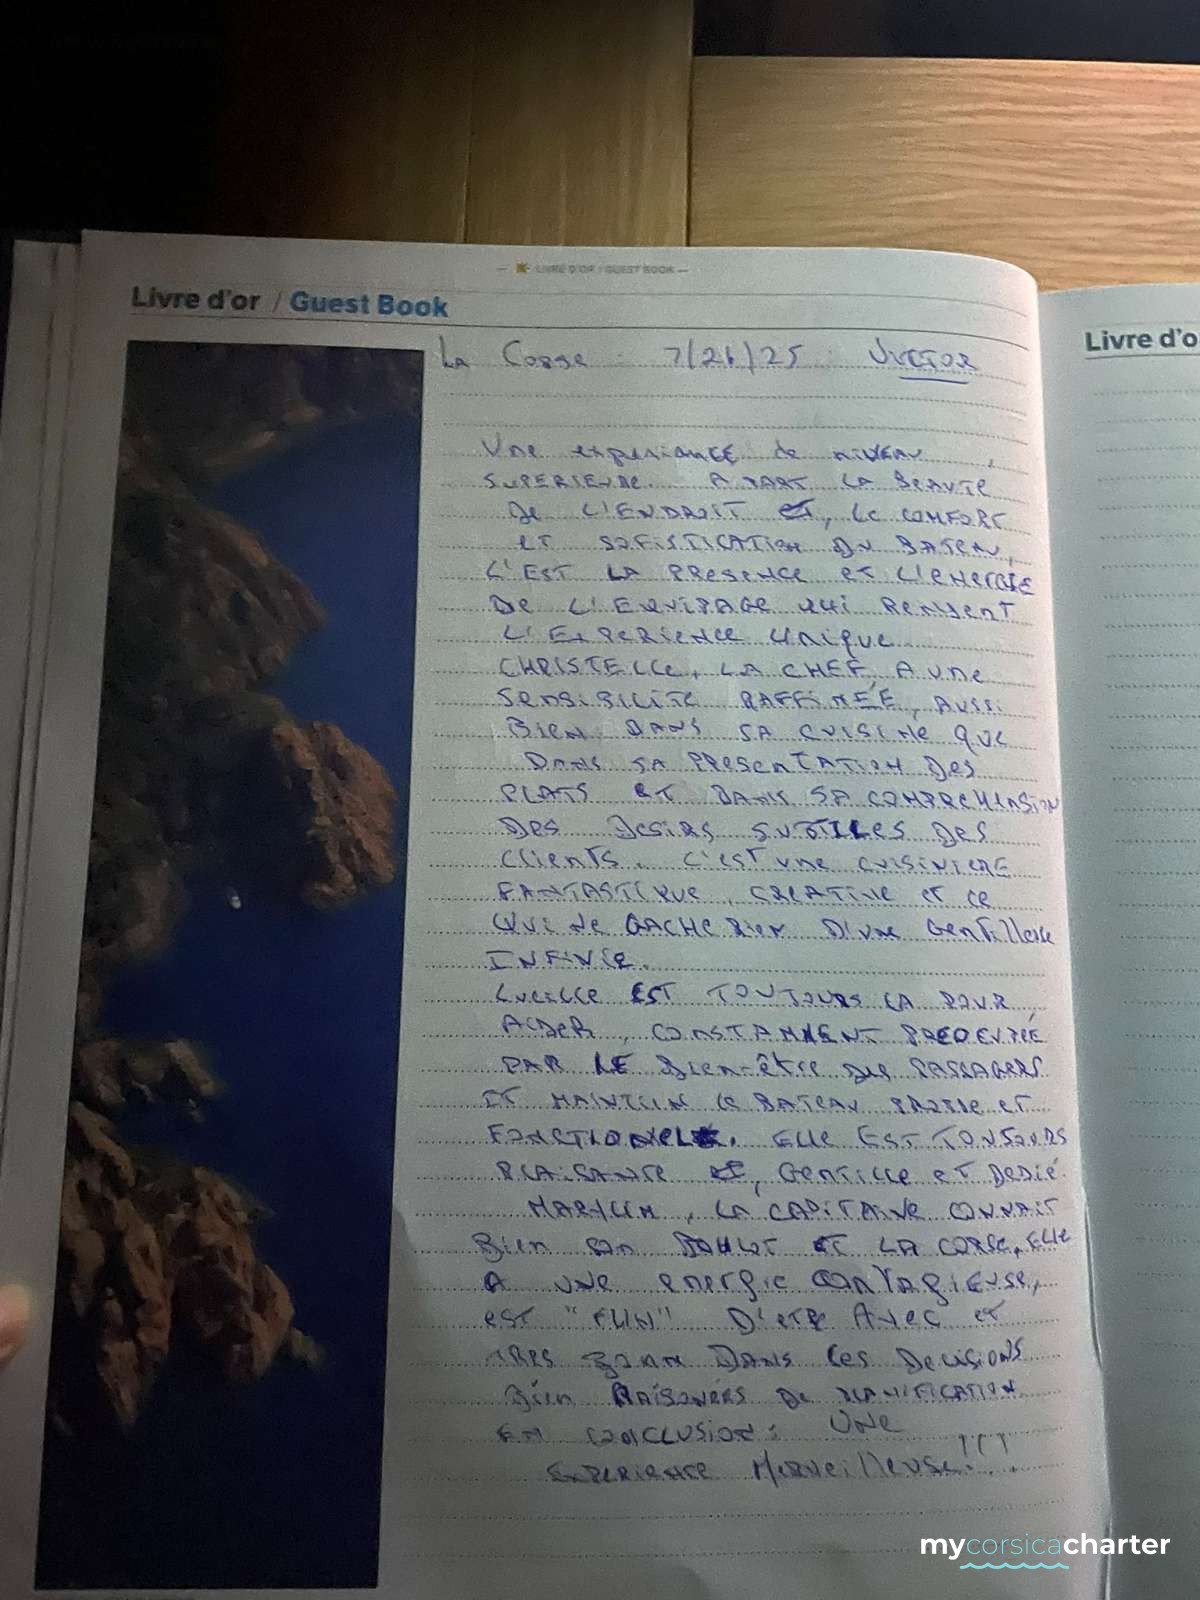 LIVRE D'OR / GUEST BOOK
Livre d'or / Guest Book
Livre d'o
La Corse : 7/26/25 :
Une experiance de niveau
superieure. A part la beaute
de l'endroit et, le comfort
et sofistication du bateau,
c'est la presence et l'energie
de l'equipage qui rendent
l'experience unique
Christelle, la chef, a une
sensibilité raffinée, aussi
bien dans sa cuisine que
dans sa presentation des
plats et dans sa comprehension
des desirs subtiles des
clients. C'est une cuisiniere
fantastique, creative et ce
qui ne gache rien d'une gentillesse
infinie.
Lucille est toujours la pour
aider, constamment preocupée
par le bien-être des passagers
et maintein le bateau propre et
fonctionel. Elle est toujours
plaisante et, gentille et dedié.
Marylin, la capitaine connait
bien son boulot et la Corse, elle
a une energie contagieuse,
est "fun" d'etre avec et
tres bonne dans les decisions
bien raisonées de planification
en conclusion: Une
experience merveilleuse!!!
mycorsicacharter